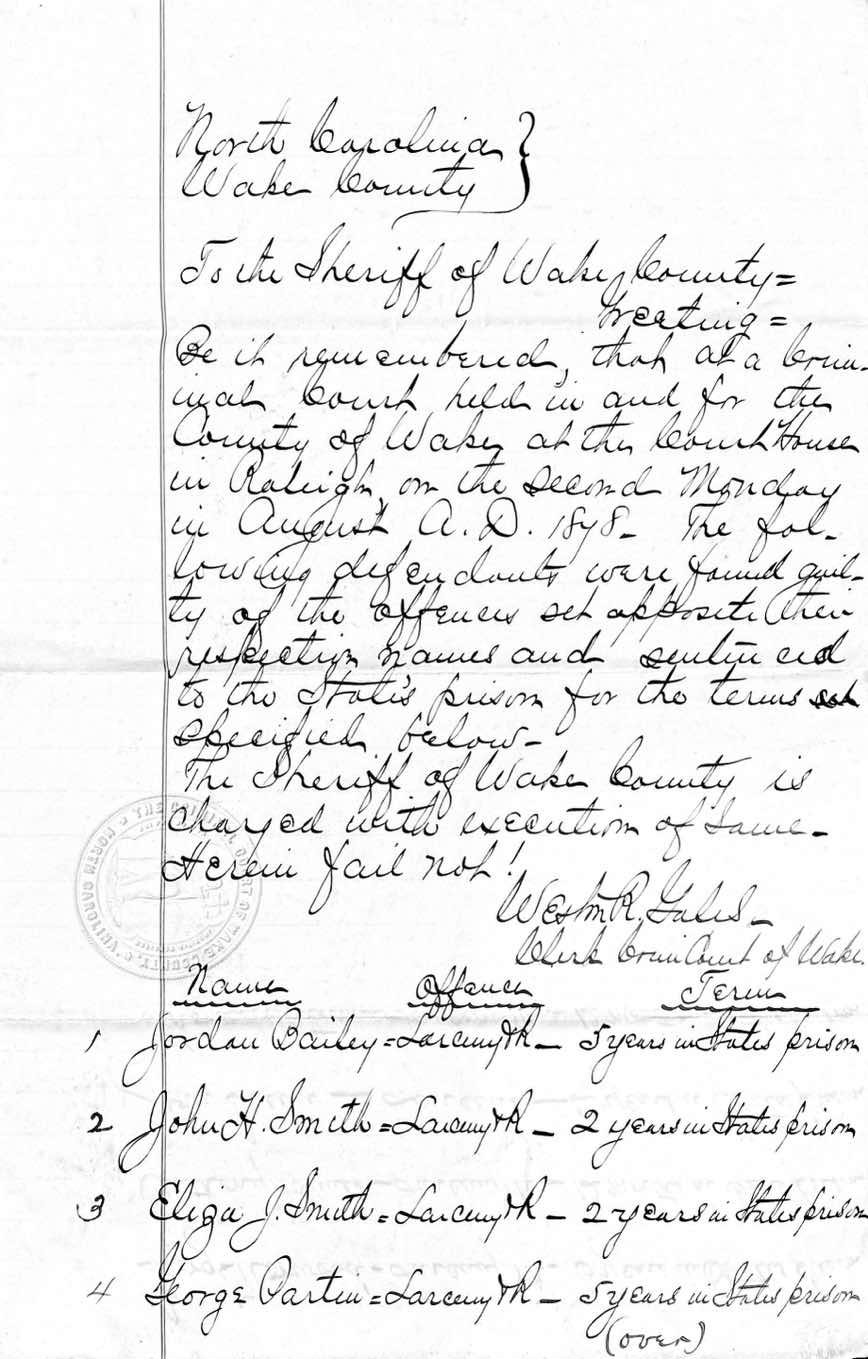 North Carolina }
Wake County }
To the Sheriff of Wake County=
Greeting=
Be it remembered, that at a Crim-
inal Court held in and for the
County of Wake at the Court House
in Raleigh, on the second Monday
in August A.D. 1878- The fol-
lowing defendants were found guil-
ty of the offences set opposite their
respective names and sentenced
to the State's prison for the terms
specified below-
The Sheriff of Wake County is
charged with execution of same-
Herein fail not!
Westn R. Gales-
Clerk Crim Court of Wake.
Name Offence Term
1 Jordan Bailey=Larceny & R- 5 years in States prison
2 John H. Smith=Larceny & R- 2 years in States prison
3 Eliza J. Smith=Larceny & R- 2 years in States prison
4 George Partin=Larceny & R- 5 years in States prison
(over)